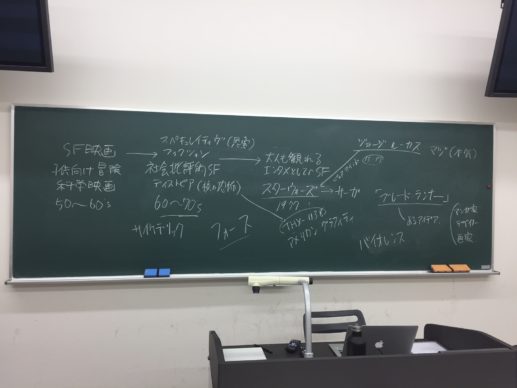 SF映画
子供向け冒険
科学映画
50〜60's
スペキュレイティヴ
フィクション
社会批評的SF
ディストピア
60〜70s
サイケデリック
フォース
大人も観れる
エンタメとしてSF
スターウォーズ
サーガ
1977
THX-1138
アメリカン グラフィティ
ジョージ ルーカス
マジ(本気)
「ブレードランナー」
バイオレンス
デザイナー
画家